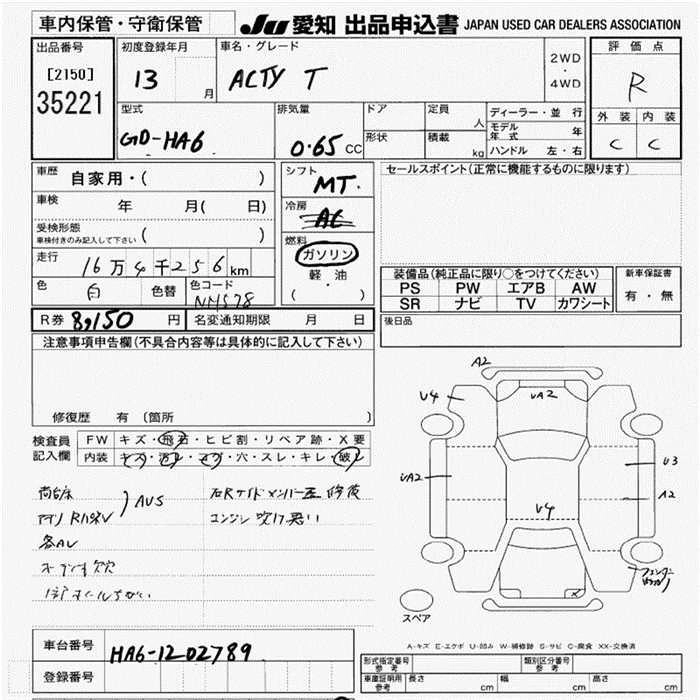 車内保管・守衛保管
JU 愛知 出品申込書 JAPAN USED CAR DEALERS ASSOCIATION
出品番号 初度登録年月 車名・グレード 2WD・4WD 評価点
[2150] 13 月 ACTY T R
35221
型式 排気量 ドア 定員 人 ディーラー・並行 外装 内装
GD-HA6 0.65 CC 形状 積載 kg モデル年式 年 C C
ハンドル 左・右
車歴 自家用・( ) シフト MT. セールスポイント(正常に機能するものに限ります)
車検 年 月( 日) 冷房 AC
受検形態 車検付きのみ記入して下さい ( ) 燃料 ガソリン
走行 16万4千256km 軽・油
色 白 色替 色コード NH578 ( ・ )
装備品(純正品に限り○をつけてください) 新車保証書
PS PW エアB AW 有・無
SR ナビ TV カワシート
R券 8,150 円 名変通知期限 月 日 後日品
注意事項申告欄(不具合内容等は具体的に記入して下さい)
修復歴 有 (箇所 )
検査員記入欄 FW キズ・飛石・ヒビ割・リペア跡・X要
内装 キズ・汚レ・コゲ・穴・スレ・キレ・破レ
AUS
エンジン吹け悪い
各AU
A2
U4 UA2
UA2 U3
A2
U4
スペア
A-キズ E-エクボ U-凹み W-補修跡 S-サビ C-腐食 XX-交換済
車台番号 HA6-1202789
登録番号
形式指定番号 参考 類別区分番号 参考
車庫証明用 参考 長さ cm 幅 cm 高さ cm